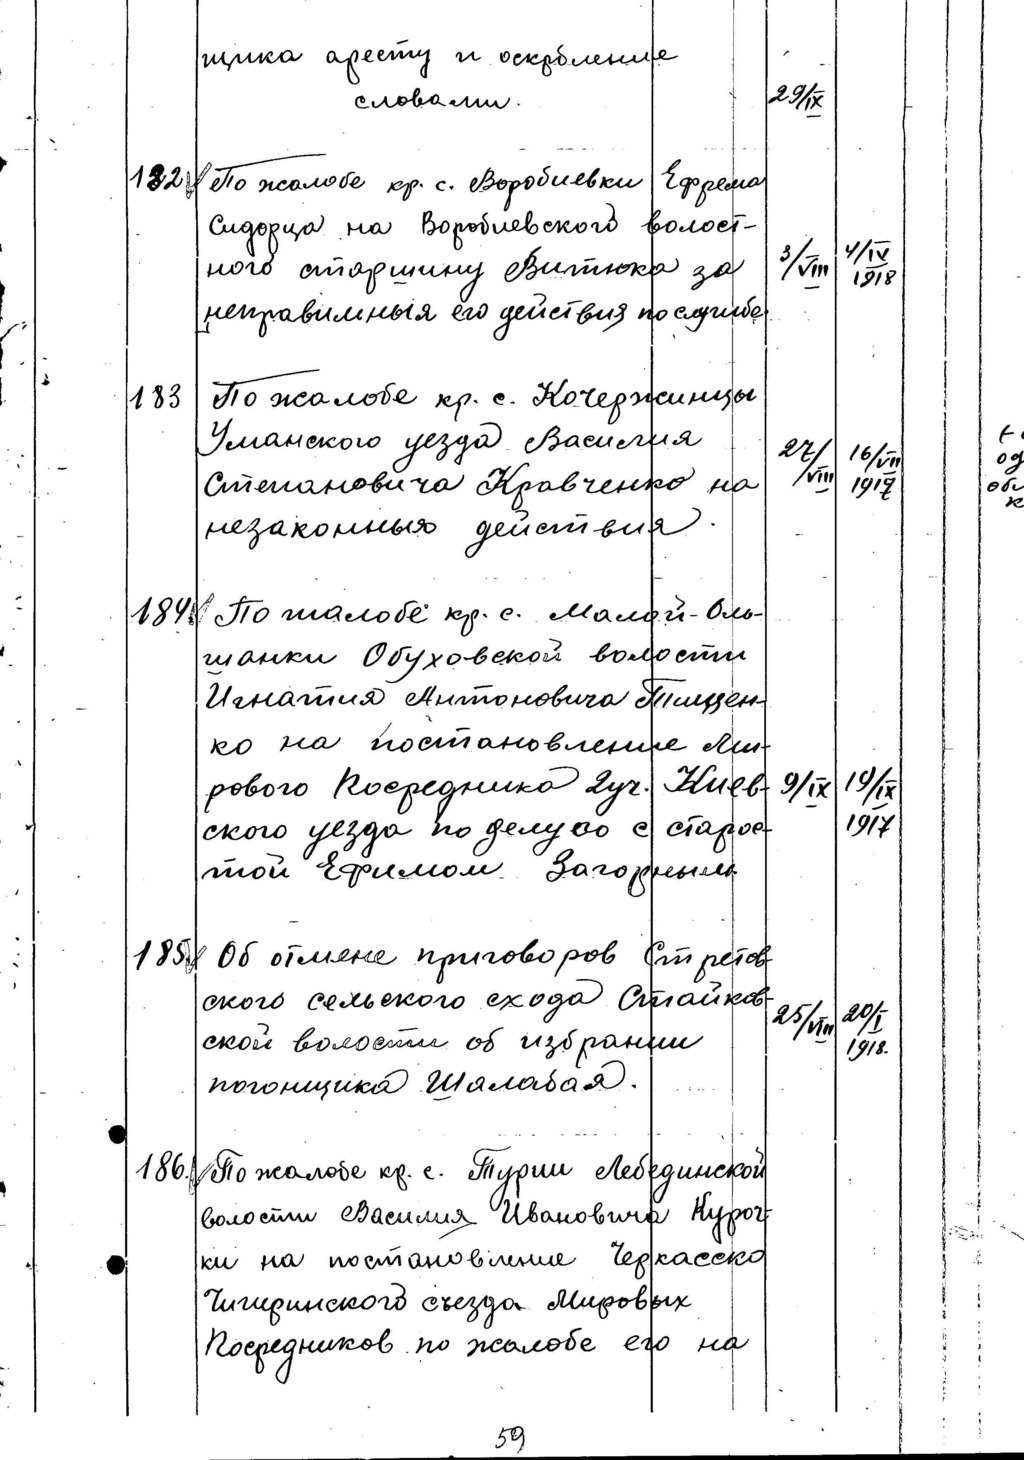 щика аресту и оскрбление
словами. 29/IX
182 По жалобе кр. с. Воробиевки Ефрема
Сидорца на Воробиевского волост-
ного старшину Витюка за 3/VIII 4/IV 1918
неправильныя его действия по службе
183 По жалобе кр. с. Кочержинцы
Уманского уезда Василия 27/VIII 16/VII 1917
Степановича Кравченко на
незаконныя действия.
184 По жалобе кр. с. Малой-Оль-
шанки Обуховской волости
Игнатия Антоновича Тищен-
ко на постановление Ми-
рового Посредника 2 уч. Киев- 9/IX 19/IX 1917
ского уезда по делу ео с старос-
той Ефимом Загорным
185 Об отмене приговоров Стретов-
ского сельского схода Стайков- 25/VIII 20/I 1918.
ской волости об избрании
погонщика Шалабая.
186. По жалобе кр. с. Турии Лебединской
волости Василия Ивановича Куроч-
ки на постановление Черкасско
Чигиринского съезда Мировых
Посредников по жалобе его на
59